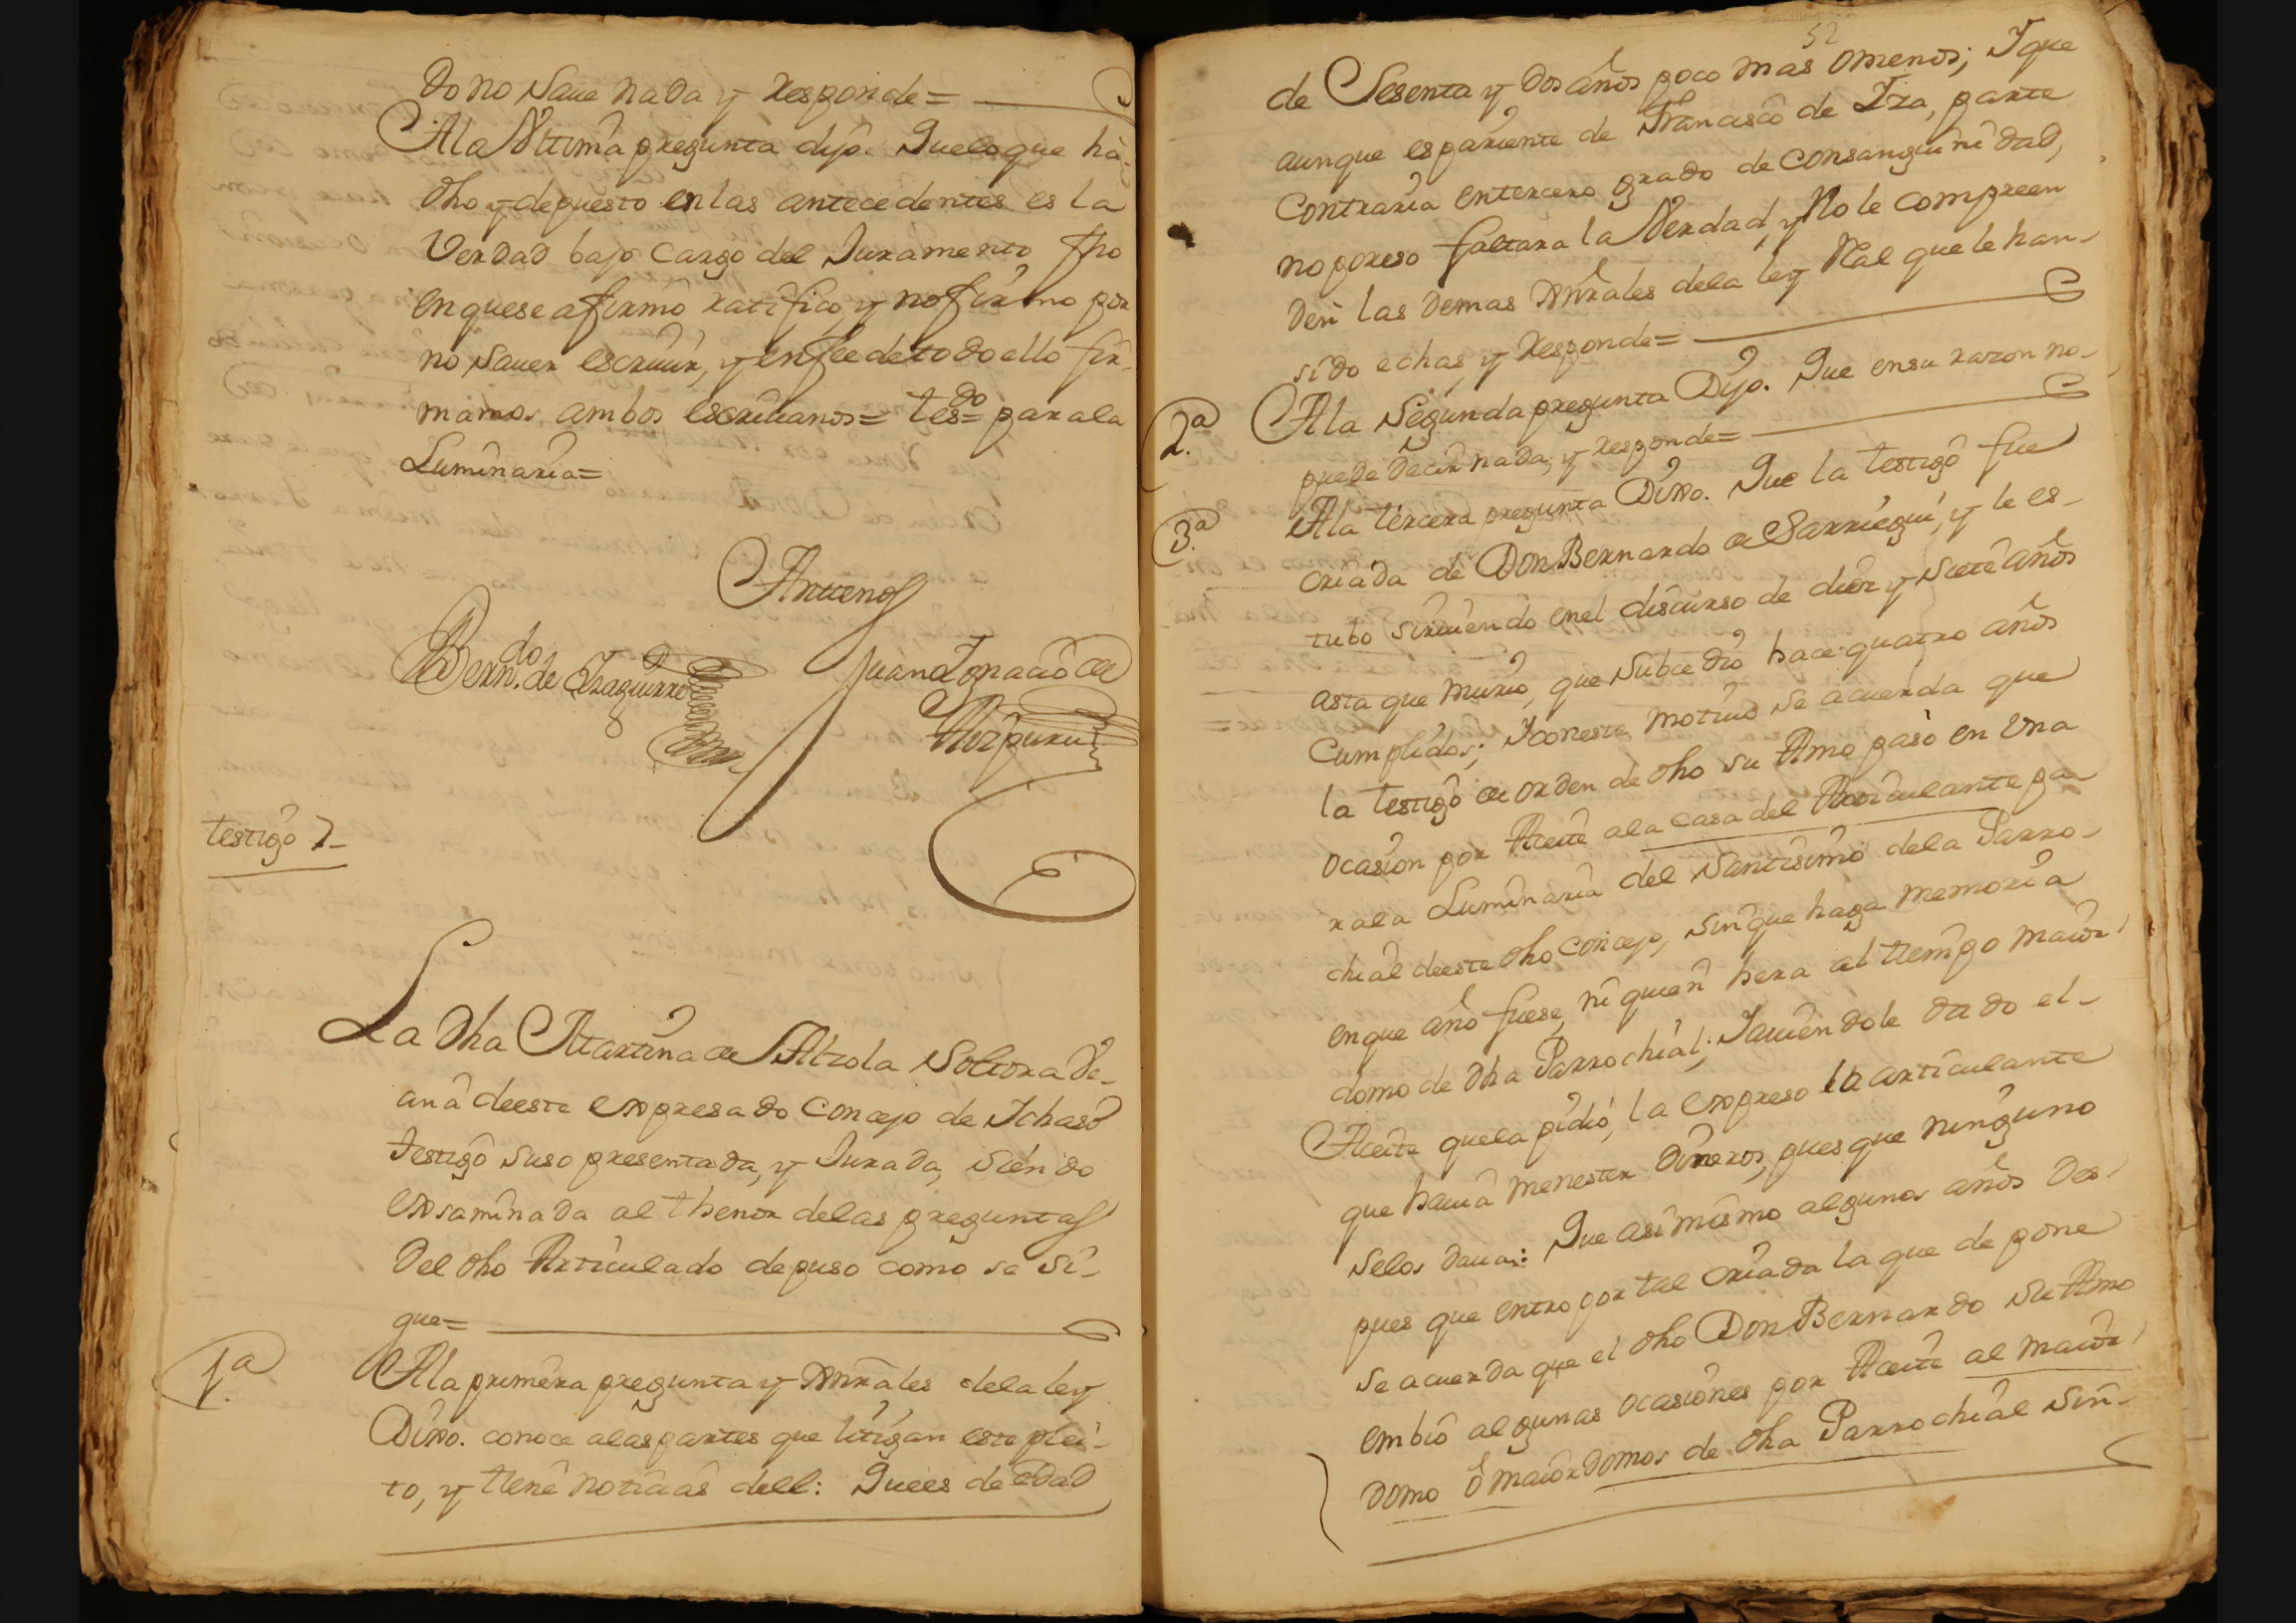 do no save nada y responde=
A la Vltima pregunta dijo. Que lo que ha
dho y depuesto en las antecedentes es la
Verdad bajo cargo del Juramento fho
en que se afirmo ratifico, y no firmo por
no saver escriuir, y en fee de todo ello fir-
mamos ambos escriuanos= tesdo= para la
Luminaria=
Antemos
Berndo. de Yzaguirre
Juan Ygnacio de
Azpuru
testigo 7-
La dha Martina de Alzola Soltera Ve-
ana de este expresado Concejo de Ychaso
testigo suso presentada, y Jurada, siendo
exsaminada al thenor de las preguntas
del dho Articulado depuso como se si-
gue=
1.a
A la primera pregunta y Gnrales de la ley
Dixo. conoce a las partes que litigan este plei-
to, y tiene noticias dell: Quees de edad
52
de Sesenta y dos años poco mas omenos; Y que
aunque es pariente de Francisco de Yza, parte
Contraria en tercero grado de consanguinidad,
no por eso faltara la Verdad, y No le compreen
den las demas Gnrales de la ley Real que le han-
sido echas, y responde=
2.a
A la Segunda pregunta Dijo. Que en su razon no-
puede decir nada, y responde=
3.a
A la tercera pregunta Dixo. Que la testigo fue
criada de Don Bernardo de Sarriegui, y le es-
tubo siruiendo en el discurso de diez y siete años
asta que murio, que subcedio hace quatro años
Cumplidos; Y con este motiuo se acuerda que
la testigo de orden de dho su Amo pasò en Vna
ocasion por Aceite a la casa del Articulante pa-
ra la Luminaria del Santisimo de la Parro-
chial de este dho Concejo, sin que haga memoria
en que año fuese, ni quien hera al tiempo maior-
domo de dha Parrochial; Y auiendole dado el-
Aceite que la pidio, la expreso la articulante
que hauia menester dineros, pues que ninguno
se los daua: Que asi mismo algunos años des-
pues que entro por tal criada la que depone
se acuerda que el dho Don Bernardo su Amo
embio algunas ocasiones por Aceite al maior-
domo ò maiordomos de dha Parrochial sin-